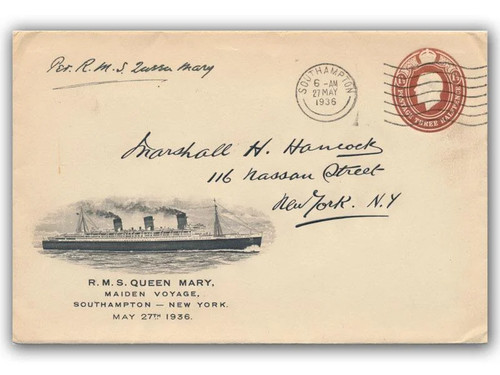 Per. R. M. S. Queen Mary
SOUTHAMPTON
6 - AM
27 MAY
1936
POSTAGE THREE HALFPENCE
Marshall H. Hancock
116 Nassau Street
New York. N.Y
R.M.S. QUEEN MARY,
MAIDEN VOYAGE,
SOUTHAMPTON — NEW YORK.
MAY 27TH 1936.